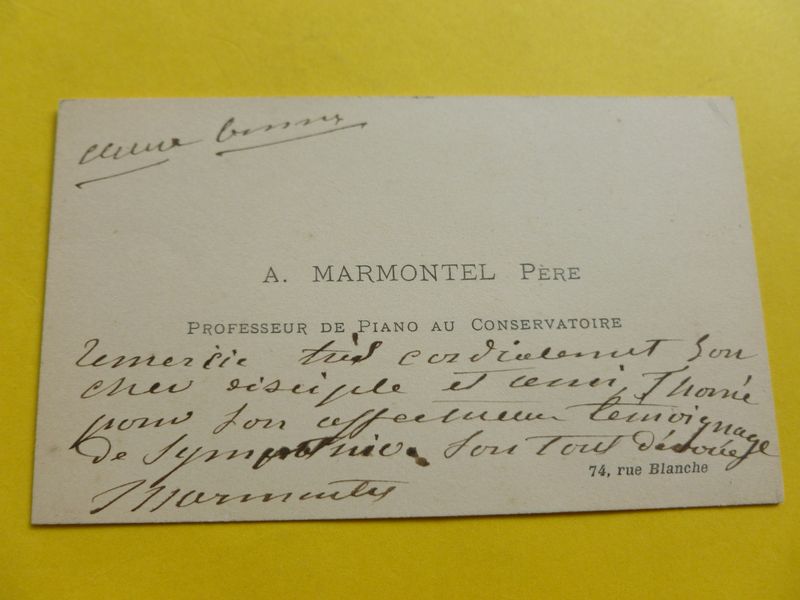 A. MARMONTEL PÈRE
PROFESSEUR DE PIANO AU CONSERVATOIRE
remercie très cordialement son
cher disciple et ami, Thomé
pour son affectueux témoignage
de sympathie. Son tout dévoué
74, rue Blanche
Marmontel